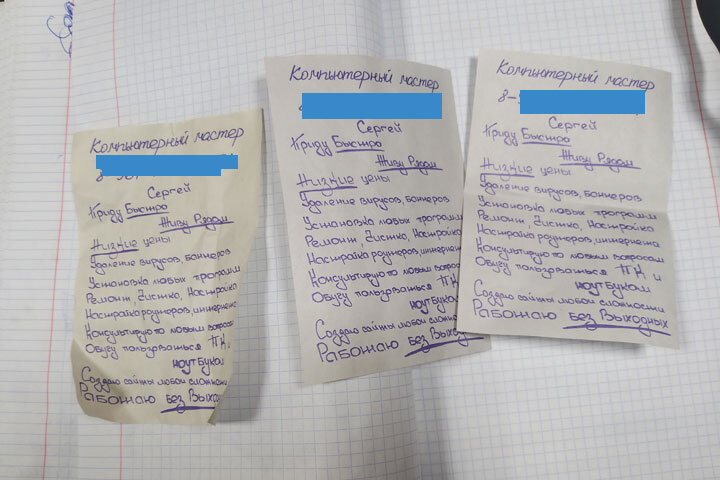 Компьютерный мастер
Сергей
Приду Быстро
Живу Рядом
Низкие цены
Удаление вирусов, баннеров
Установка любых программ
Ремонт, Чистка, Настройка
Настройка роутеров, интернета
Консультирую по любым вопросам
Обучу пользоваться ПК,
ноутбуком
Создаю сайты любой сложности
Работаю без Выход
Компьютерный мастер
Сергей
Приду Быстро
Живу Рядом
Низкие цены
Удаление вирусов, баннеров
Установка любых программ
Ремонт, Чистка, Настройка
Настройка роутеров, интернета
Консультирую по любым вопросам
Обучу пользоваться ПК и
ноутбуком
Создаю сайты любой сложности
Работаю без Выходных
Компьютерный мастер
8-
Сергей
Приду Быстро
Живу Рядом
Низкие цены
Удаление вирусов, баннеров
Установка любых программ
Ремонт, Чистка, Настройка
Настройка роутеров, интернета
Консультирую по любым вопросам
Обучу пользоваться ПК и
ноутбуком
Создаю сайты любой сложности
Работаю без Выходных